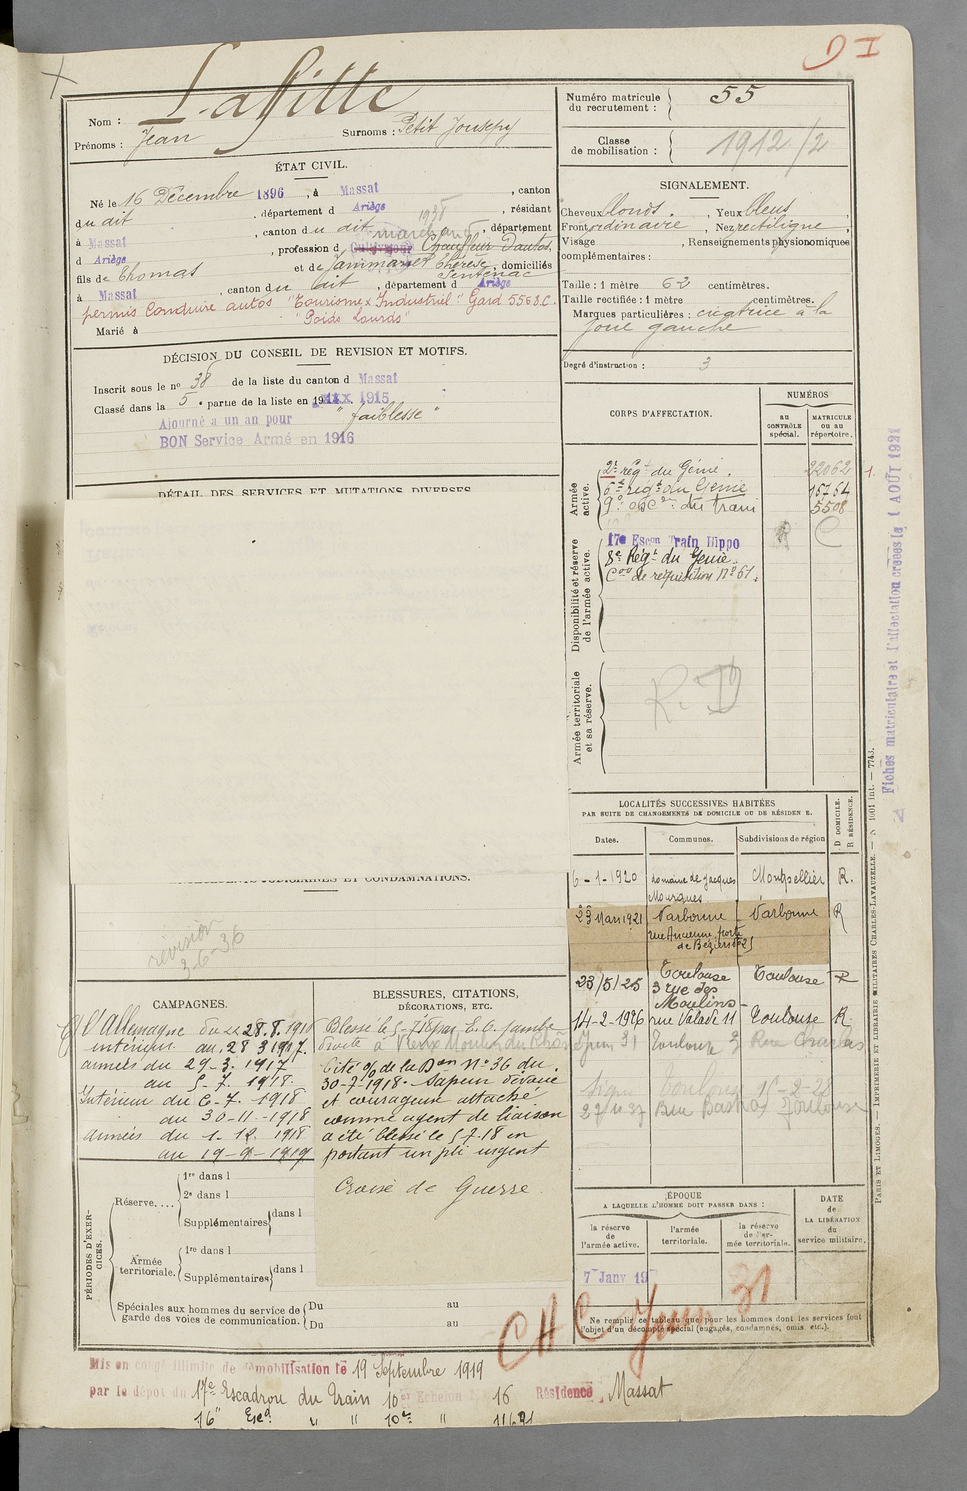 D I
Nom : Lafitte
Prénoms : Jean Surnoms : Petit Jousepy
Numéro matricule du recrutement : 55
Classe de mobilisation : 1912/2
ÉTAT CIVIL.
Né le 16 Décembre 1896, à Massat, canton
du dit, département d Ariège, résidant
1938
à Massat, canton du dit marchand, département
d Ariège, profession d Cultivateur Chauffeur d'autos,
fils de Thomas et de Jammaret Thérèse, domiciliés
Sentenac
à Massat, canton du dit, département d Ariège
permis Conduire autos "Tourisme x Industriel" Gard 5563.C.
"Poids Lourds"
Marié à
SIGNALEMENT.
Cheveux blonds, Yeux bleus,
Front ordinaire, Nez rectiligne,
Visage , Renseignements physionomiques
complémentaires :
Taille : 1 mètre 62 centimètres.
Taille rectifiée : 1 mètre centimètres.
Marques particulières : cicatrice à la
joue gauche
Degré d'instruction : 3
DÉCISION DU CONSEIL DE REVISION ET MOTIFS.
Inscrit sous le nº 38 de la liste du canton d Massat
Classé dans la 5e partie de la liste en 1915
Ajourné a un an pour "faiblesse"
BON Service Armé en 1916
DÉTAIL DES SERVICES ET MUTATIONS DIVERSES
CORPS D'AFFECTATION.
NUMÉROS
au CONTRÔLE spécial.
MATRICULE ou au répertoire.
Armée active.
2e régt du Génie. 22062
6e régt du Génie 15754
9e esc. du train 5508
Disponibilité et réserve de l'armée active.
17e Escon Train Hippo R C
8e Régt du Genie.
Con de réquisition Nº 61.
Armée territoriale et sa réserve.
R. D
Fiches matriculaire et d'affectation créées le 1 AOUT 1921
PARIS ET LIMOGES. — IMPRIMERIE ET LIBRAIRIE MILITAIRES CHARLES-LAVAUZELLE. — N 1001 int. — 7743.
LOCALITÉS SUCCESSIVES HABITÉES
PAR SUITE DE CHANGEMENTS DE DOMICILE OU DE RÉSIDENCE.
Dates. Communes. Subdivisions de région D DOMICILE. R RÉSIDENCE.
6-1-1920 Domaine de Jacques Mourgues Montpellier R.
23 Mars 1921 Narbonne Narbonne R
rue Ancienne porte
de Béziers
23/5/25 Toulouse Toulouse R
3 rue des
Moulins
14-2-1926 rue Valade 11 Toulouse R
juin 31 Toulouse 3 Rue Charles
Toulouse 15-2-28
Toulouse
ANTÉCÉDENTS JUDICIAIRES ET CONDAMNATIONS.
revision
3-6-36
CAMPAGNES.
C/ l'Allemagne du 28.8.1916
intérieur au 28 3 1917.
armées du 29-3-1917
au 5-7-1918.
Intérieur du 6-7-1918
au 30-11-1918
armées du 1-12-1918
au 19-9-1919
BLESSURES, CITATIONS,
DÉCORATIONS, ETC.
Blessé le 5-7-18 par E.O. jambe
droite à Vieux Moulin
Cité % de la Don Nº 36 du
30-7-1918. Sapeur dévoué
et courageux attaché
comme agent de liaison
a été blessé le 5 7-18 en
portant un pli urgent
Croix de Guerre
PÉRIODES D'EXERCICES.
Réserve....
1re dans l
2e dans l
Supplémentaires dans l
Armée territoriale.
1re dans l
Supplémentaires dans l
Spéciales aux hommes du service de garde des voies de communication.
Du au
Du au
ÉPOQUE
A LAQUELLE L'HOMME DOIT PASSER DANS :
la réserve de l'armée active.
l'armée territoriale.
la réserve de l'armée territoriale.
DATE de LA LIBÉRATION du service militaire.
7 Janv 19
Ne remplir ce tableau que pour les hommes dont les services font
l'objet d'un décompte spécial (engagés, condamnés, omis, etc.).
CHC 31
Mis en congé illimité de démobilisation le 19 Septembre 1919
par le dépôt du 17e Escadron du Train 10e Echelon 16 Résidence, Massat
16" Escd " " 10e "